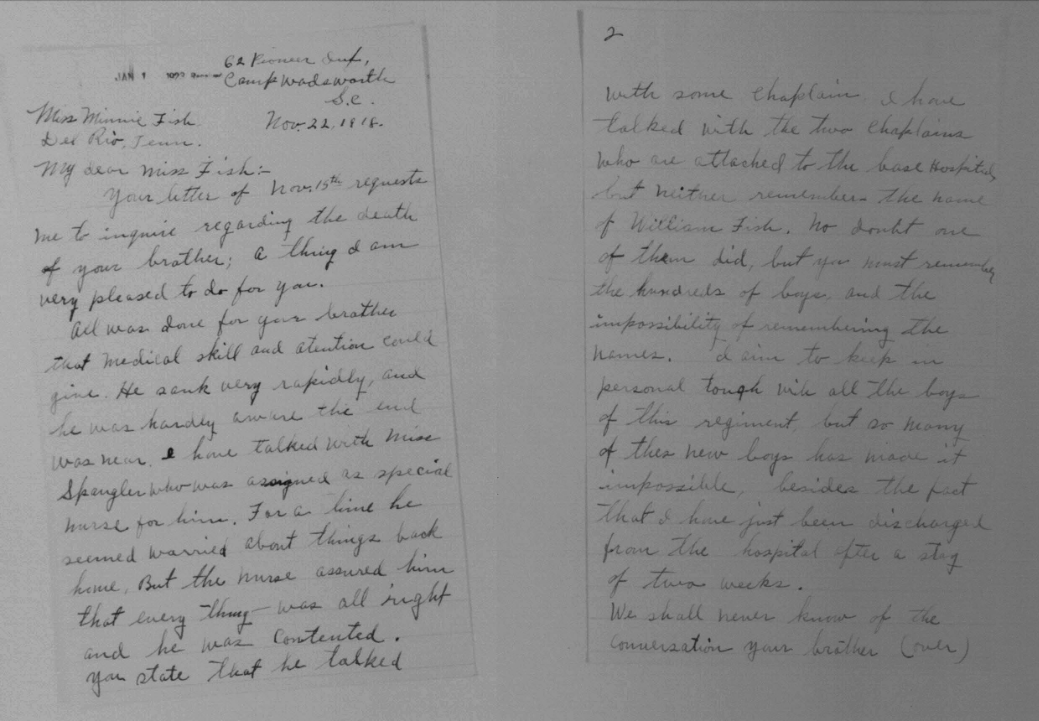 62 Pioneer Inf,
JAN 1
Camp Wadsworth
S.C.
Miss Minnie Fish
Nov. 22, 1918.
Del Rio, Tenn.
My dear Miss Fish:-
Your letter of Nov. 15th requests
me to inquire regarding the death
of your brother; a thing I am
very pleased to do for you.
All was done for your brother
that medical skill and atention could
give. He sank very rapidly, and
he was hardly aware the end
was near. I have talked with Miss
Spangler who was assigned as special
nurse for him. For a time he
seemed worried about things back
home, But the nurse assured him
that every thing was all right
and he was contented.
You state that he talked
2
with some Chaplain. I have
talked with the two Chaplains
who are attached to the base Hospital,
but neither remember the name
of William Fish. No doubt one
of them did, but you must remember
the hundreds of boys, and the
impossibility of remembering the
names. I aim to keep in
personal touch with all the boys
of this regiment, but so many
of thes new boys has made it
impossible, besides the fact
that I have just been discharged
from the hospital after a stay
of two weeks.
We shall never know of the
conversation your brother (over)